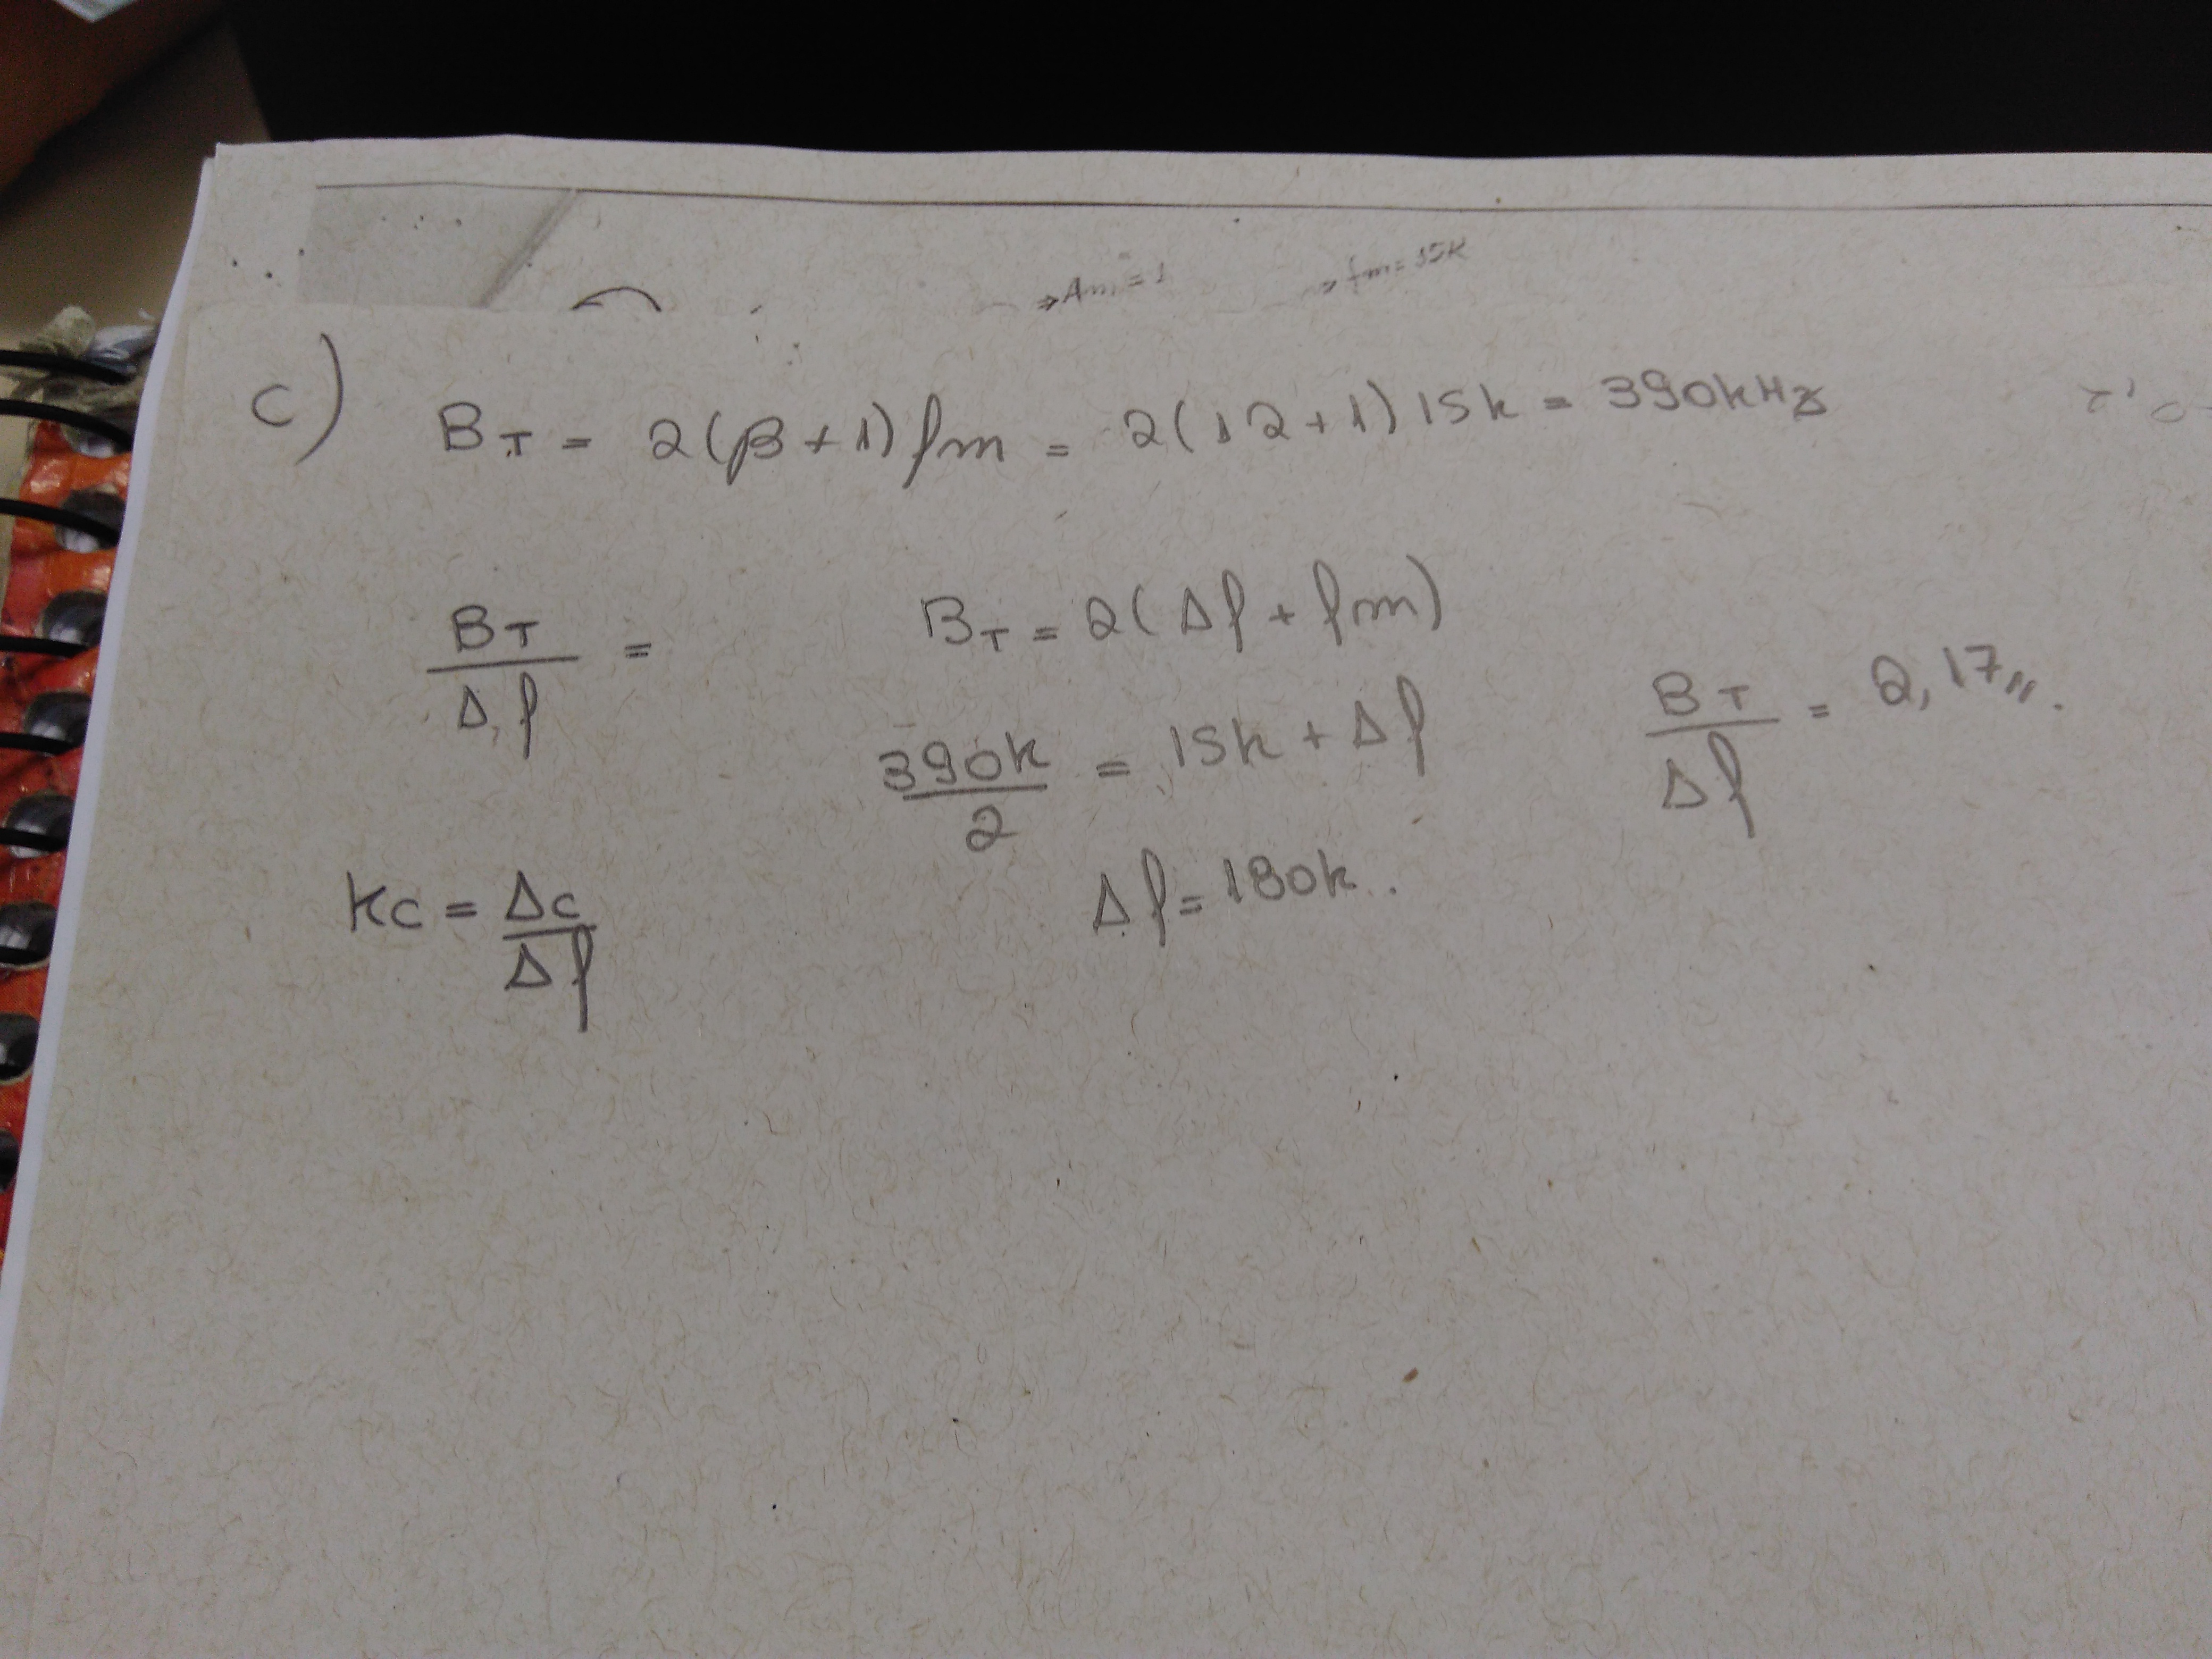 ⇒Am=1 → fm=15K
c) BT = 2(β+1)fm = 2(12+1)15k = 390kHz
BT/Δf = BT = 2(Δf + fm)
390k/2 = 15k + Δf BT/Δf = 2,17〃.
Kc = Δc/Δf Δf = 180k.